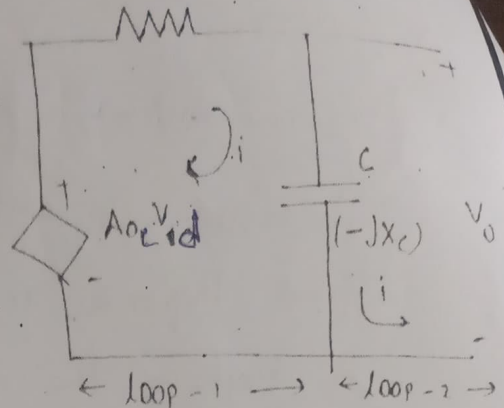 +
i
C
+
A_OL V_id
(-jx_c)
V_o
-
i
-
← loop-1 →
← loop-2 →